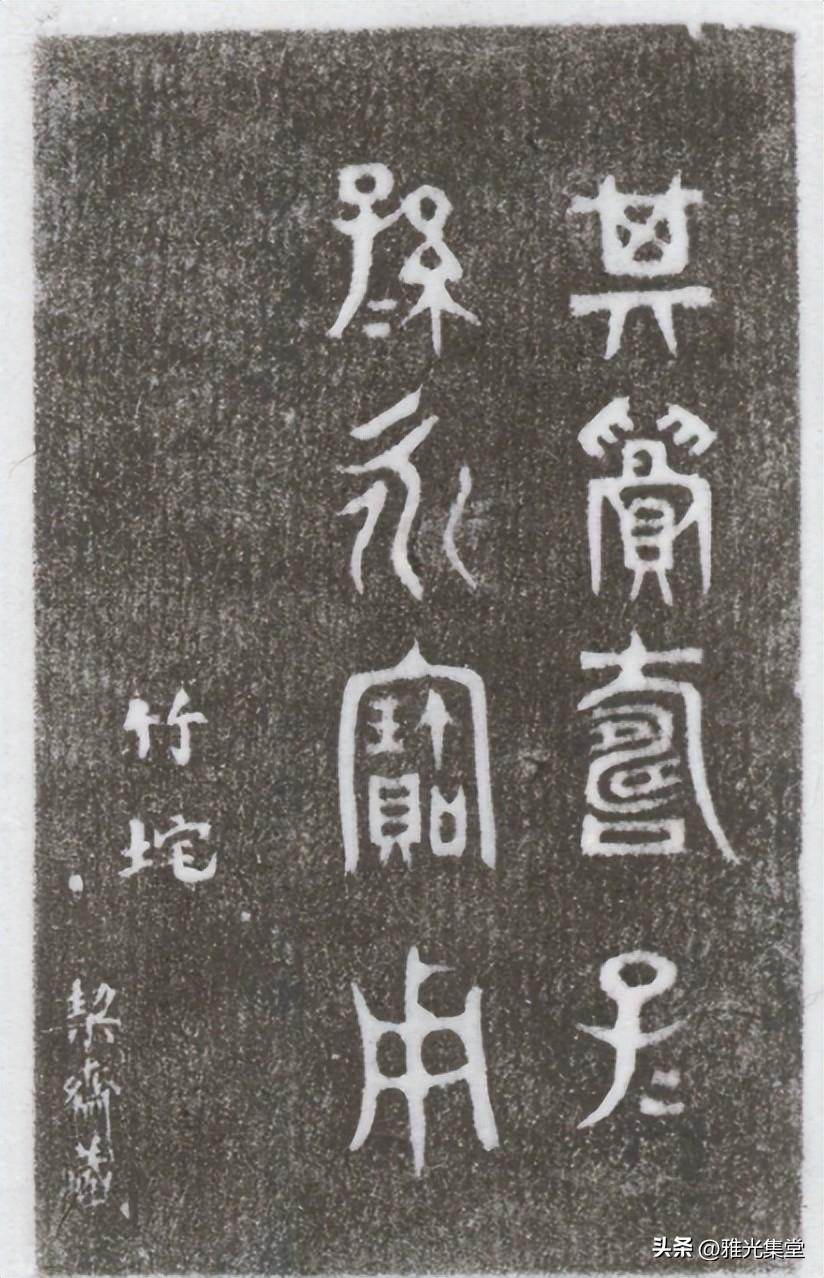 其眉壽子=
孫=永寶用
竹垞
栔齋藏
头条 @雅光集堂